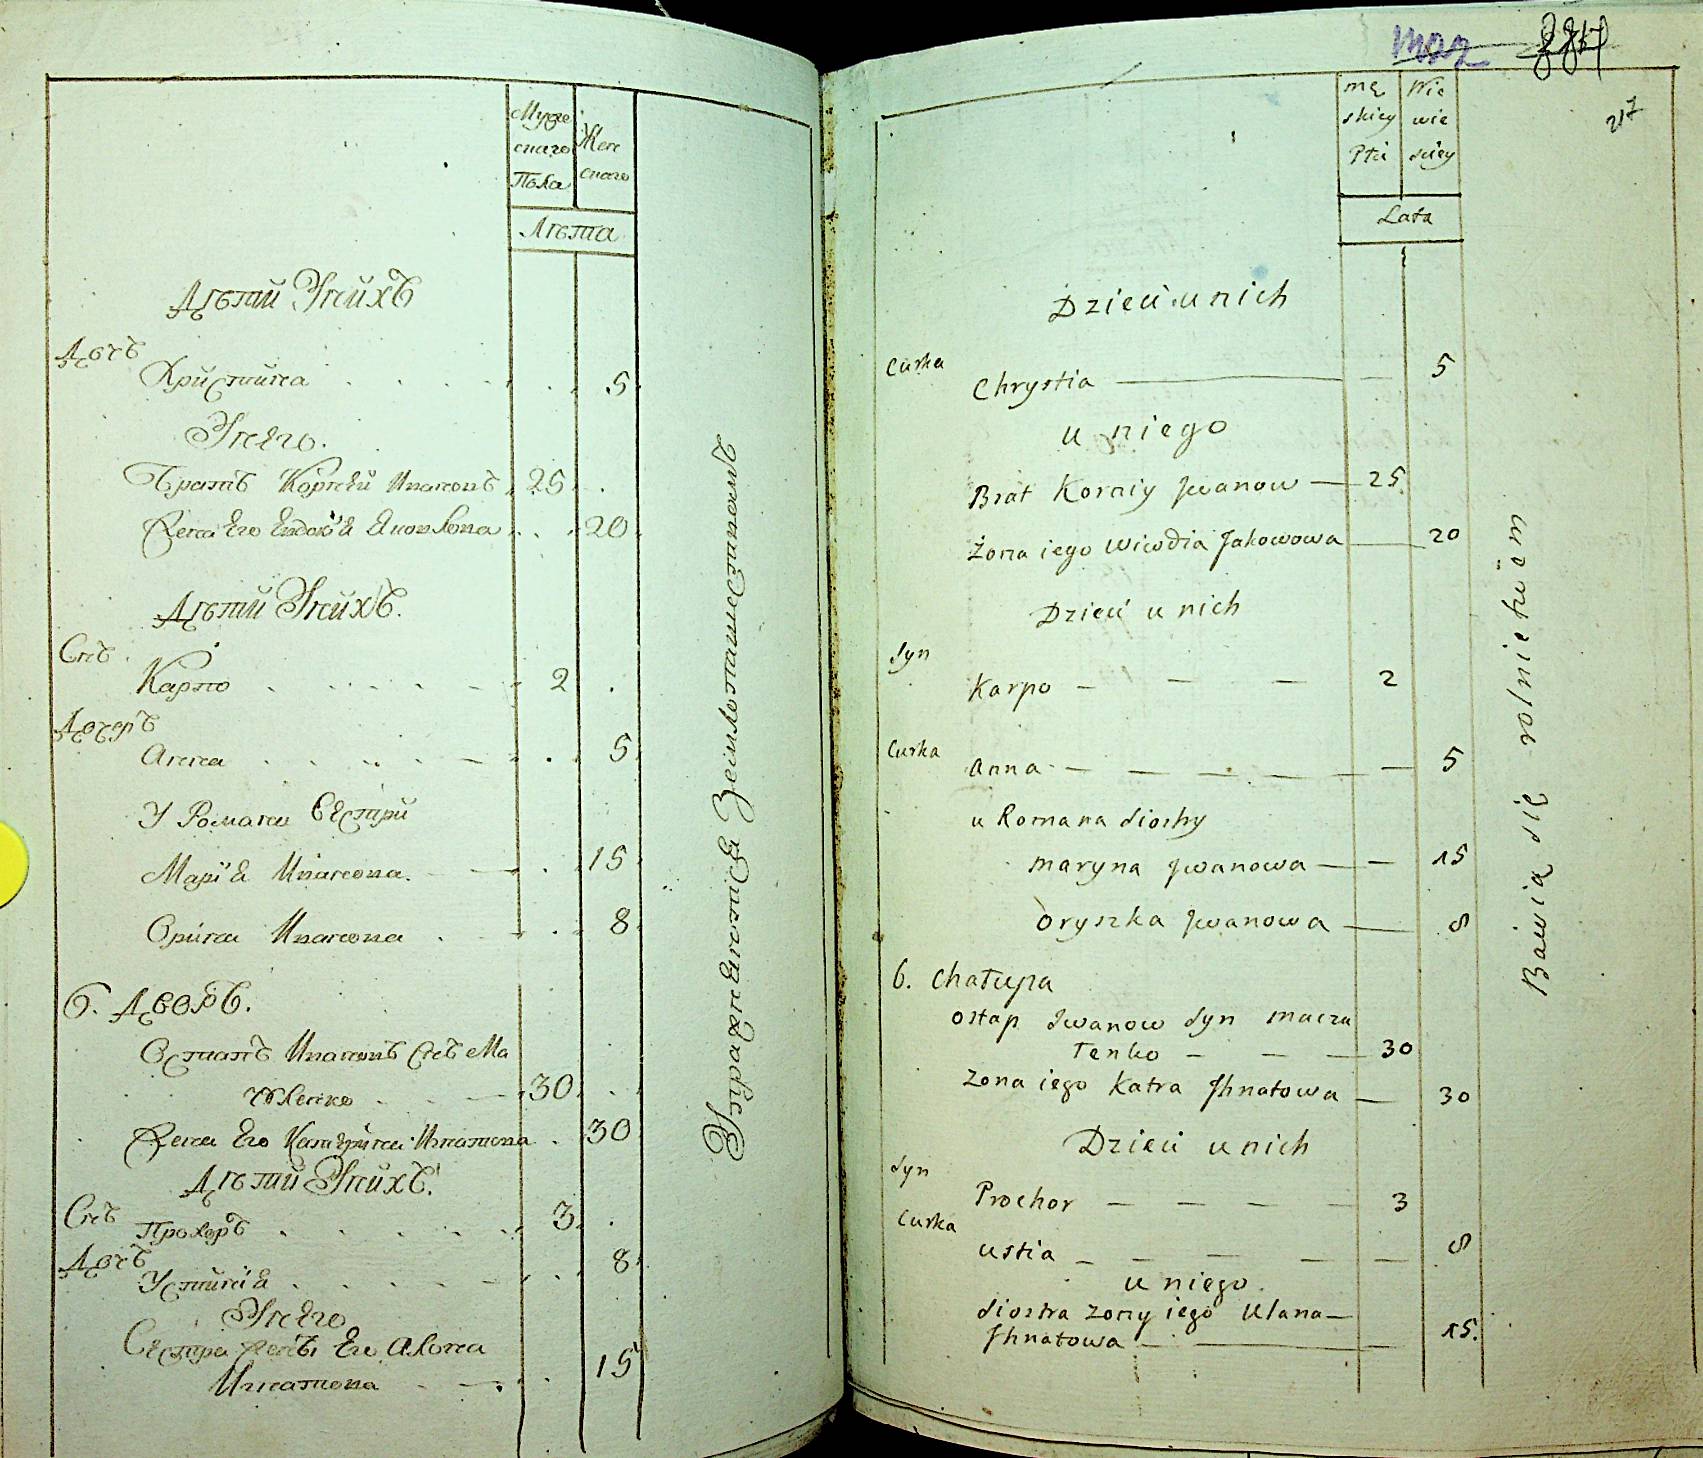 Мужескаго Пола
Женскаго
Лѣта
Дѣтй Унйхъ
Дочъ
Хрйстйна 5
Унего.
Братъ Корнѣй Ивановъ 25
Жена Его Евдокія Яковлева 20
Дѣтй Унйхъ.
Снъ
Карпо 2
Дочеръ
Анна 5
У Романа Сестрй
Марія Иванова 15
Орйна Иванова 8
6. Дворъ.
Остапъ Ивановъ Снъ Ма
30
Жена Его Катерйна Игнатова 30
Дѣтй Унйхъ.
Снъ
Прохоръ 3
Дочъ
Устйнія 8
Унего
Сестра Жены Его Алена
Игнатова 15
Упражняются Земледелиемъ
мąz 884
217
Mę Nie
skiey wie
Płci sciey
Lata
Dzieci u nich
Curka
Chrystia 5
u niego
Brat Korniy Jwanow 25
Żona iego Wiwdia Jakowowa 20
Dzieci u nich
Syn
Karpo 2
Curka
Anna 5
u Romana Siostry
Maryna Jwanowa 15
Oryszka Jwanowa 8
6. Chałupa
Ostap Iwanow Syn Macza
Tenko 30
Zona iego Katra Jhnatowa 30
Dzieci u nich
Syn
Prochor 3
Curka
Ustia 8
u niego
Siostra zony iego Ulana
Jhnatowa 15.
Bawią się rolnictwem